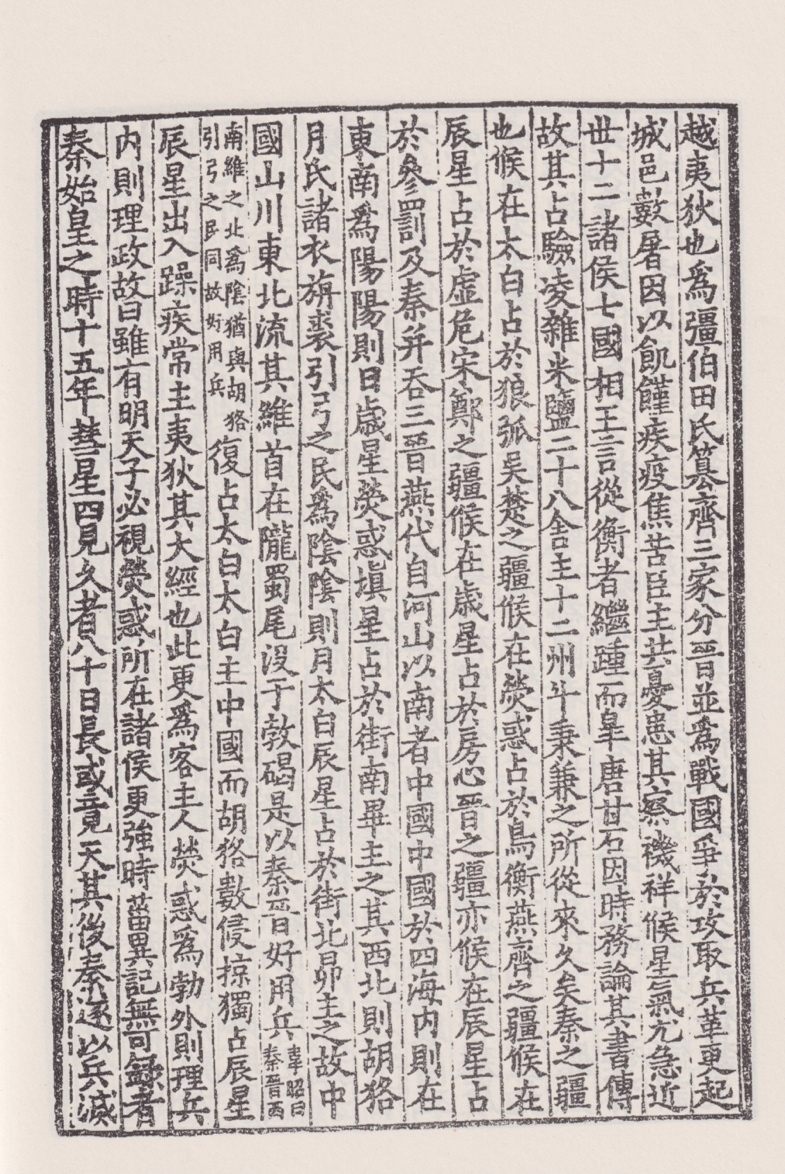 越夷狄也爲彊伯田氏簒齊三家分晉並爲戰國爭於攻取兵革更起
城邑數屠因以飢饉疾疫焦苦臣主共憂患其察禨祥候星氣尤急近
丗十二諸侯七國相王言從衡者繼踵而皐唐甘石因時務論其書傳
故其占驗凌雜米鹽二十八舍主十二州斗秉兼之所從來久矣秦之疆
也候在太白占於狼弧吴楚之疆候在熒惑占於鳥衡燕齊之疆候在
辰星占於虛危宋鄭之疆候在歳星占於房心晉之疆亦候在辰星占
於參罰及秦并吞三晉燕代自河山以南者中國中國於四海内則在
東南爲陽陽則日歳星熒惑塡星占於街南畢主之其西北則胡狢
月氏諸衣旃裘引弓之民爲陰陰則月太白辰星占於街北昴主之故中
國山川東北流其維首在隴蜀尾没于敦碣是以秦晉好用兵韋昭曰秦晉西
南維之北爲陰猶與胡狢引弓之民同故好用兵復占太白太白主中國而胡狢數侵掠獨占辰星
辰星出入躁疾常主夷狄其大經也此更爲客主人熒惑爲勃外則理兵
内則理政故曰雖有明天子必視熒惑所在諸侯更強時菑異記無可録者
秦始皇之時十五年彗星四見久者八十日長或竟天其後秦遂以兵滅